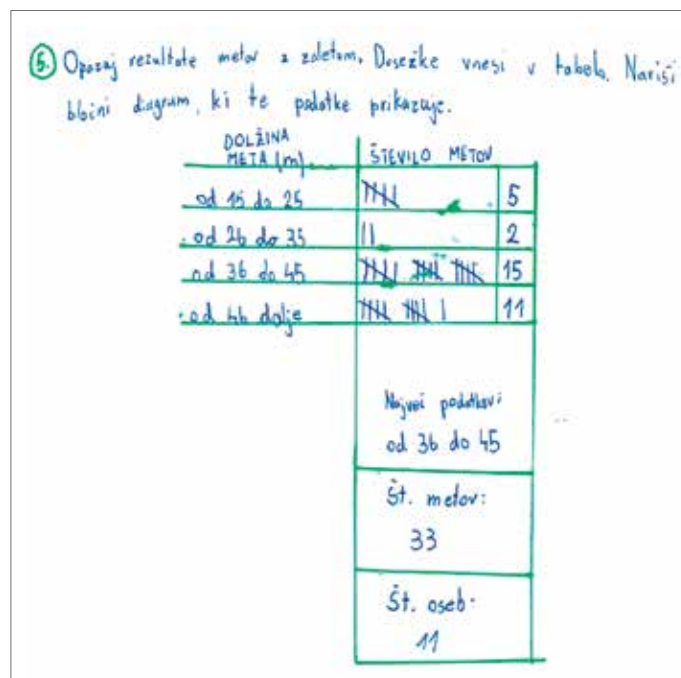 5. Opazuj rezultate metov z zaletom. Dosežke vnesi v tabelo. Nariši
bločni diagram, ki te podatke prikazuje.
DOLŽINA META (m) ŠTEVILO METOV
od 15 do 25 5
od 26 do 35 2
od 36 do 45 15
od 46 dalje 11
Največ podatkov:
od 36 do 45
Št. metov:
33
Št. oseb:
11